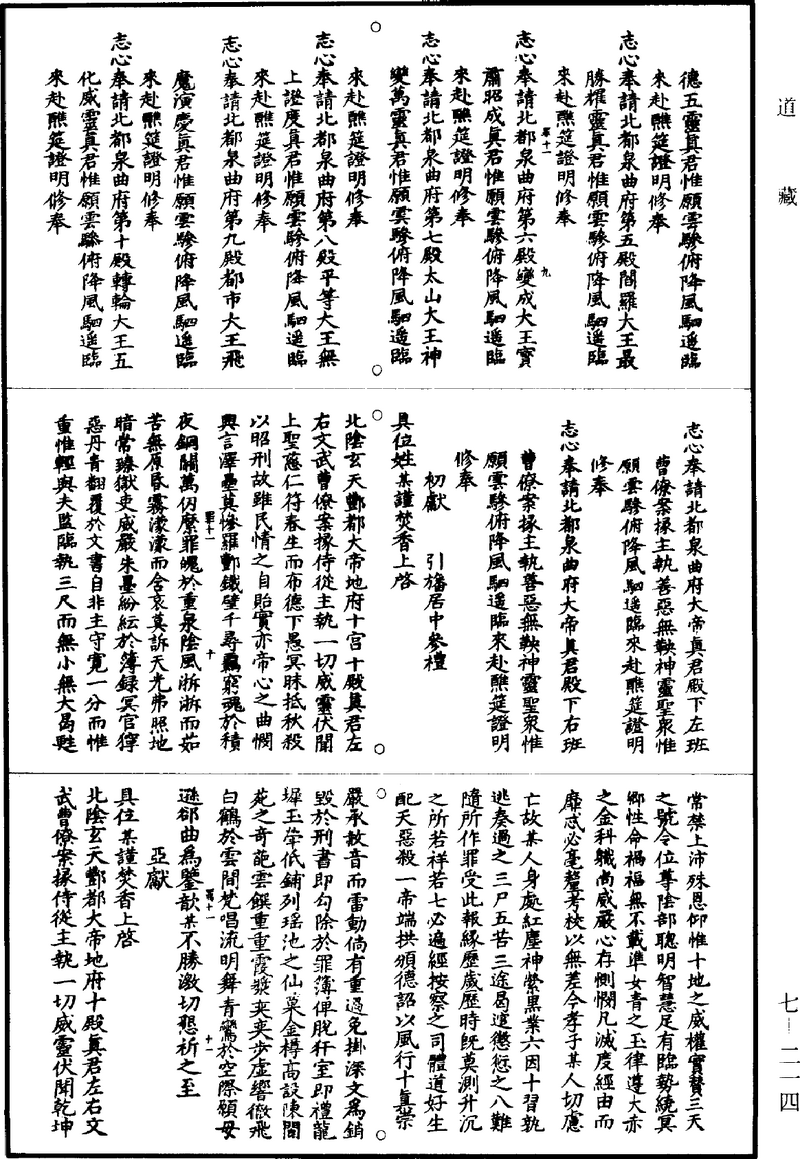 道藏
七－二一四
德五靈真君惟願雲驂俯降風駟遥臨
來赴醮筵證明修奉
志心奉請北都泉曲府第五殿閻羅大王最
勝耀靈真君惟願雲驂俯降風駟遥臨
來赴醮筵證明修奉
志心奉請北都泉曲府第六殿變成大王寶
肅昭成真君惟願雲驂俯降風駟遥臨
來赴醮筵證明修奉
志心奉請北都泉曲府第七殿太山大王神
變萬靈真君惟願雲驂俯降風駟遥臨
來赴醮筵證明修奉
志心奉請北都泉曲府第八殿平等大王無
上證度真君惟願雲驂俯降風駟遥臨
來赴醮筵證明修奉
志心奉請北都泉曲府第九殿都市大王飛
魔演慶真君惟願雲驂俯降風駟遥臨
來赴醮筵證明修奉
志心奉請北都泉曲府第十殿轉輪大王五
化威靈真君惟願雲驂俯降風駟遥臨
來赴醮筵證明修奉
志心奉請北都泉曲府大帝真君殿下左班
曹僚案掾主執善惡無鞅神靈聖衆惟
願雲驂俯降風駟遥臨來赴醮筵證明
修奉
志心奉請北都泉曲府大帝真君殿下右班
曹僚案掾主執善惡無鞅神靈聖衆惟
願雲驂俯降風駟遥臨來赴醮筵證明
修奉
初獻　引旛居中參禮
具位姓某謹焚香上啓
北陰玄天酆都大帝地府十宮十殿真君左
右文武曹僚案掾侍從主執一切威靈伏聞
上聖慈仁符春生而布德下愚冥昧抵秋殺
以昭刑故雖民情之自貽實亦帝心之曲憫
興言澤壘莫慘羅酆鐵壁千尋羈窮魂於積
夜銅關萬仞縻罪魄於重泉陰風淅淅而茹
苦無原昏霧濛濛而含哀莫訴天光弗照地
暗常臻獄吏威嚴朱墨紛紜於簿録冥官獰
惡丹青翻覆於文書自非主守寛一分而惟
重惟輕與夫監臨執三尺而無小無大曷甦
常禁上沛殊恩仰惟十地之威權實贊三天
之號令位尊陰部聰明智慧足有臨勢統冥
卿性命禍福無不載準女青之玉律遵大赤
之金科職尚威嚴心存惻憫凡滅度經由而
靡忒必毫釐考校以無差今孝子某人切慮
亡故某人身處紅塵神縈黑業六因十習孰
逃奏過之三尸五苦三途曷逭懲愆之八難
隨所作罪受此報緣歷歲歷時既莫測升沉
之所若祥若七必遍經按察之司體道好生
配天惡殺一帝端拱頒德詔以風行十真宗
嚴承教音而雷動倘有重過免掛深文爲銷
毀於刑書即勾除於罪簿俾脱犴室即禮龍
墀玉蕐低鋪列瑶池之仙菓金樽高設陳閬
苑之奇葩雲饌重重霞漿奕奕步虚響徹飛
白鶴於雲間梵唱流明舞青鸞於空際願毋
遜卻曲爲鑒歆某不勝激切懇祈之至
亞獻
具位某謹焚香上啓
北陰玄天酆都大帝地府十殿真君左右文
武曹僚案掾侍從主執一切威靈伏聞乾坤